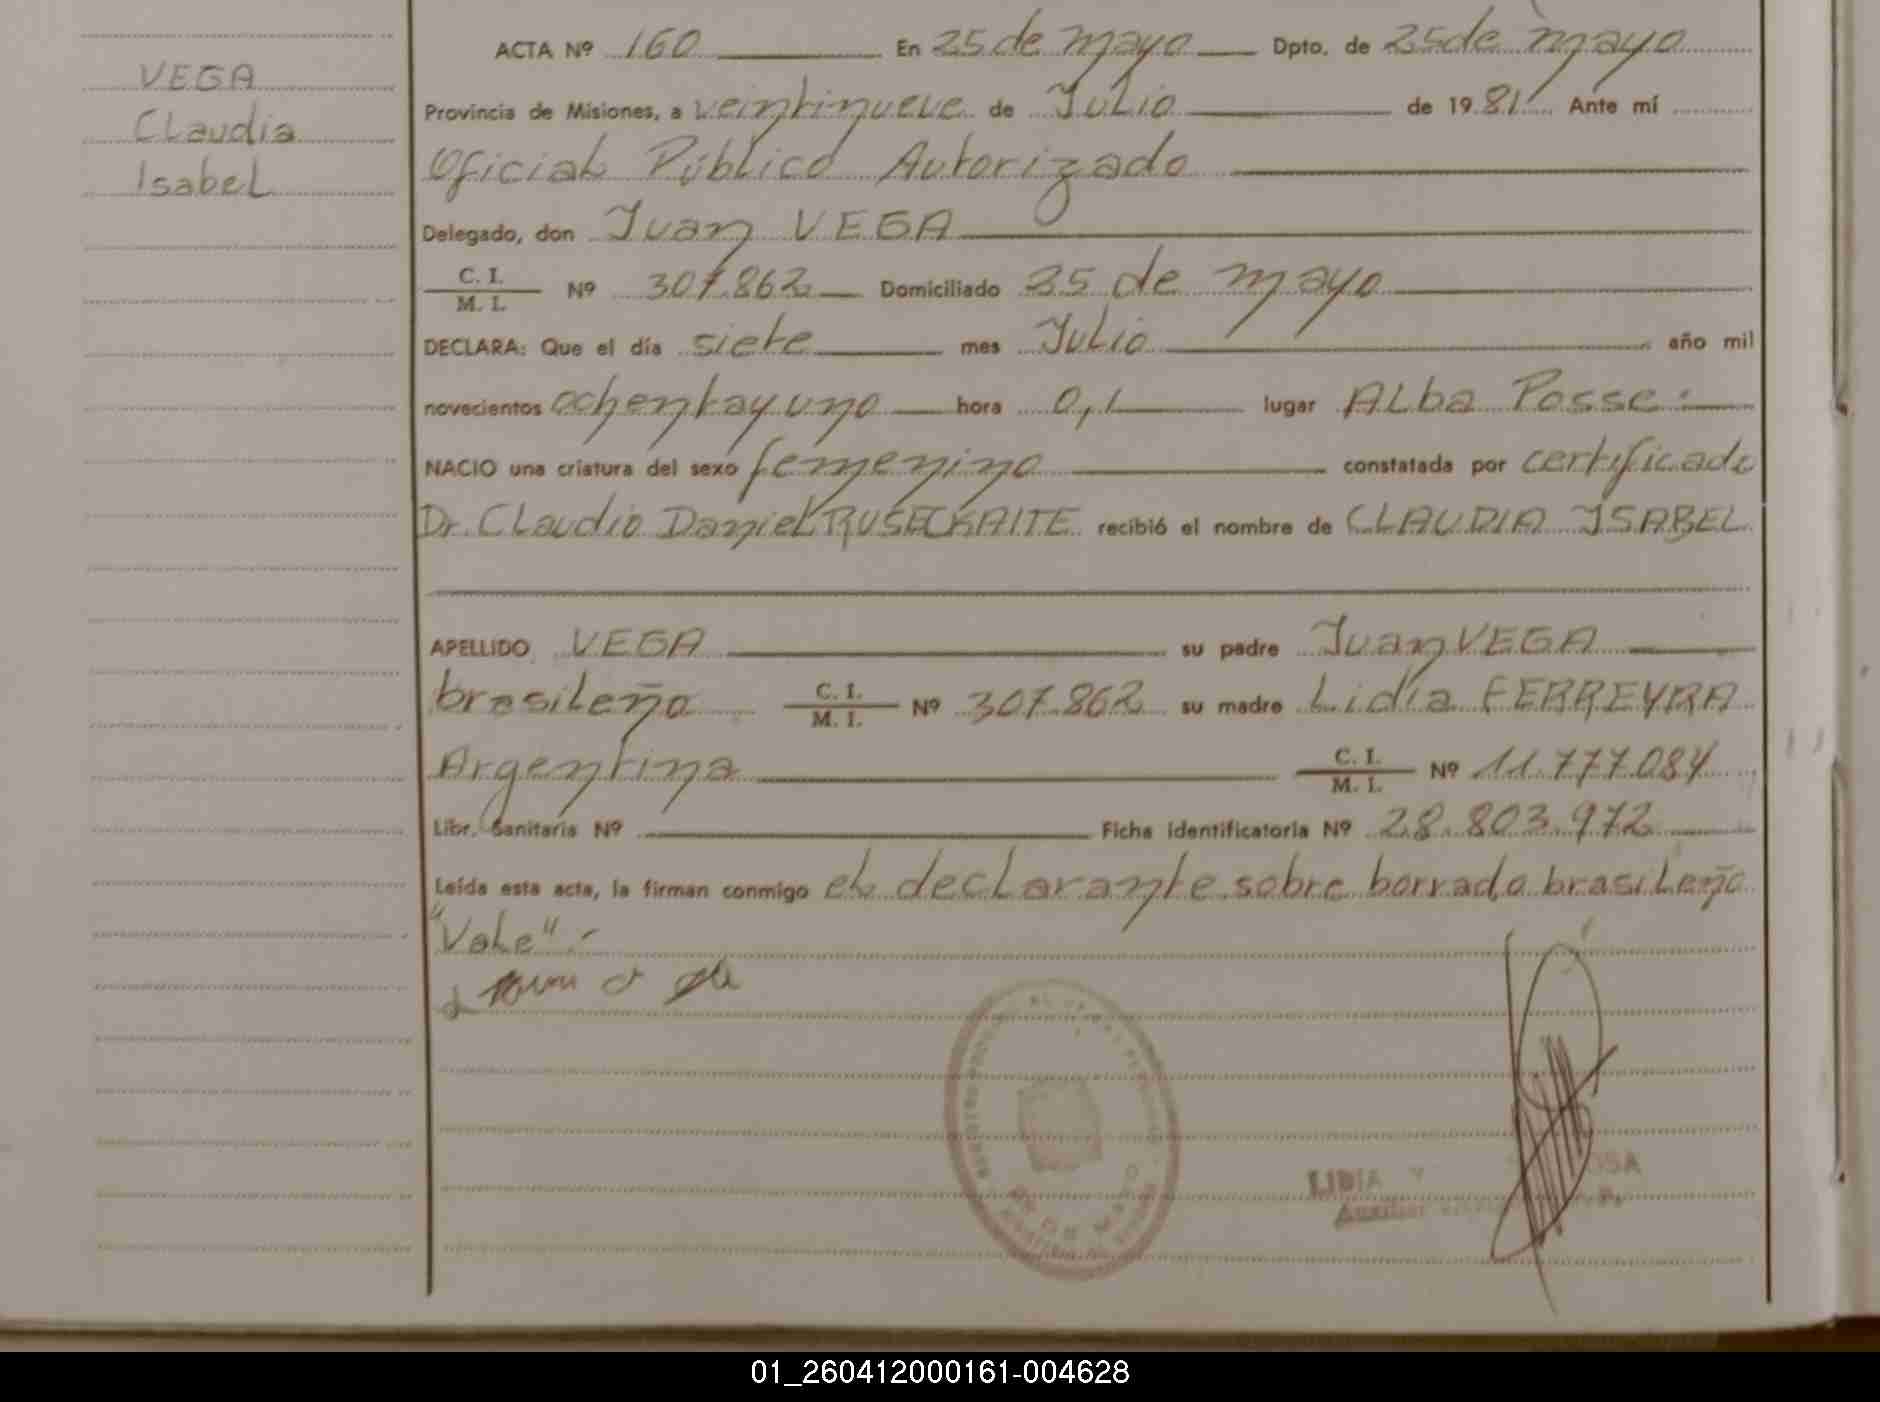 VEGA
Claudia
Isabel
ACTA Nº 160 En 25 de mayo Dpto. de 25 de mayo
Provincia de Misiones, a veintinueve de Julio de 1981 Ante mí
Oficial Público Autorizado
Delegado, don Juan VEGA
C. I.
M. I.
Nº 307.862 Domiciliado 25 de mayo
DECLARA: Que el día siete mes Julio año mil
novecientos ochentayuno hora 0,1 lugar Alba Posse.-
NACIO una criatura del sexo femenino constatada por certificado
Dr. Claudio Daniel RUSECKAITE recibió el nombre de CLAUDIA ISABEL
APELLIDO VEGA su padre Juan VEGA
brasileño C. I. M. I. Nº 307.862 su madre Lidia FERREYRA
Argentina C. I. M. I. Nº 11.777.084
Libr. Sanitaria Nº Ficha identificatoria Nº 28.803.972
Leída esta acta, la firman conmigo el declarante sobre borrado brasileño
"Vale".-
LIDIA
Auxiliar
01_260412000161-004628